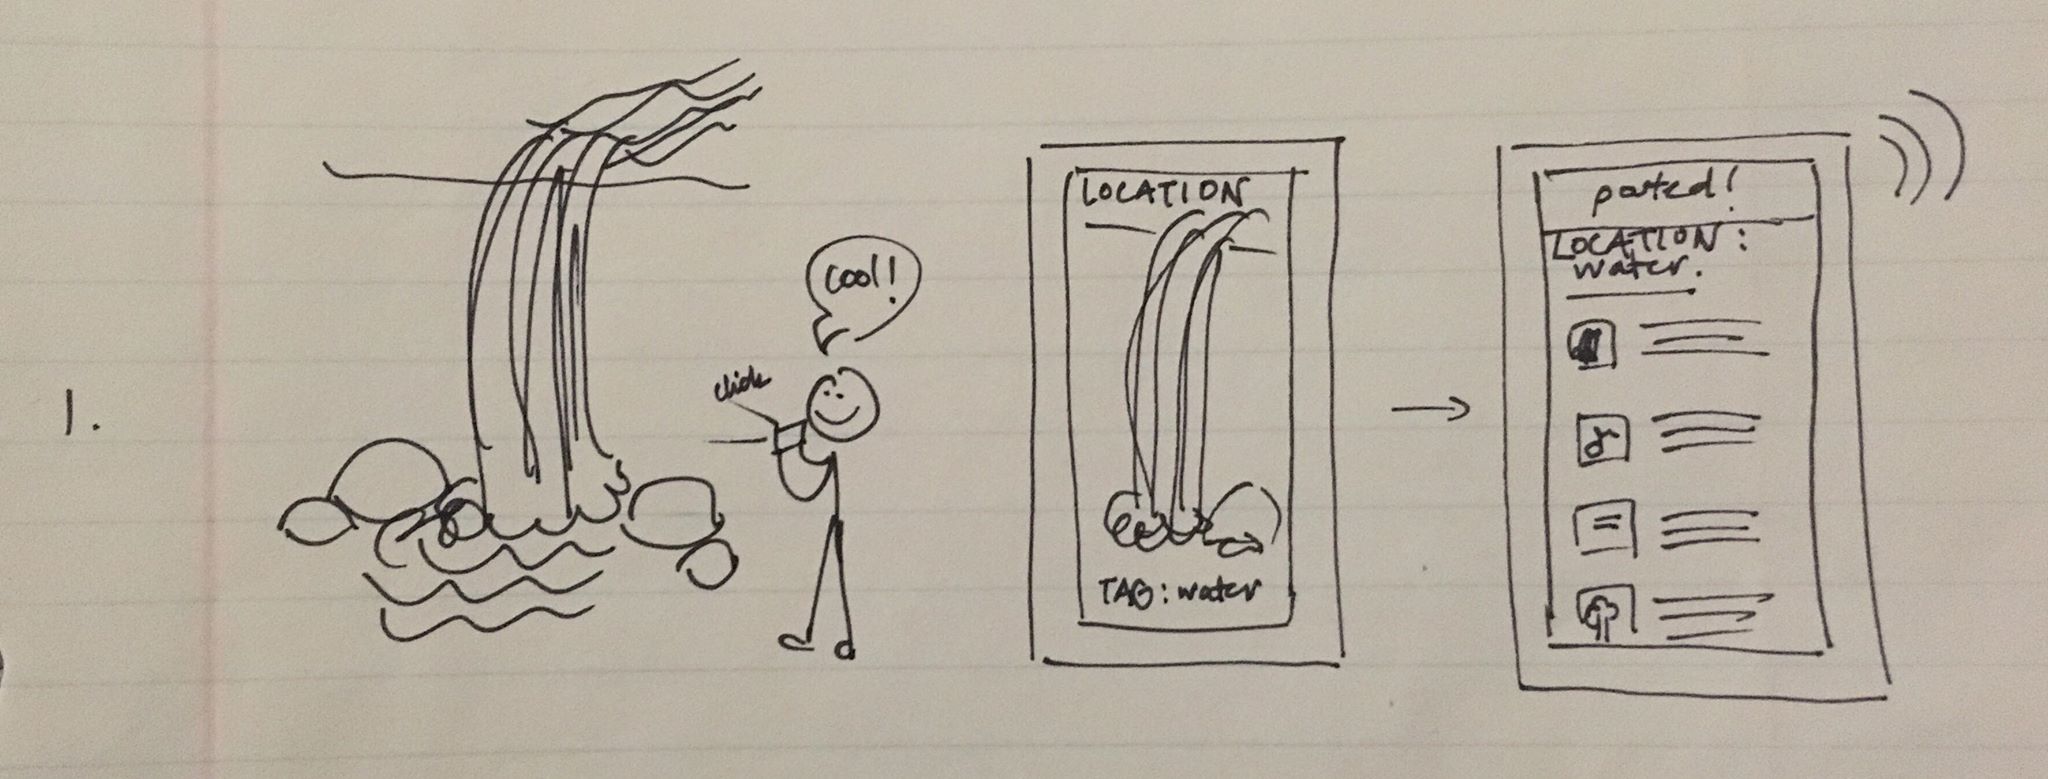 1.
cool!
click
LOCATION
TAG: water
posted!
LOCATION:
water.